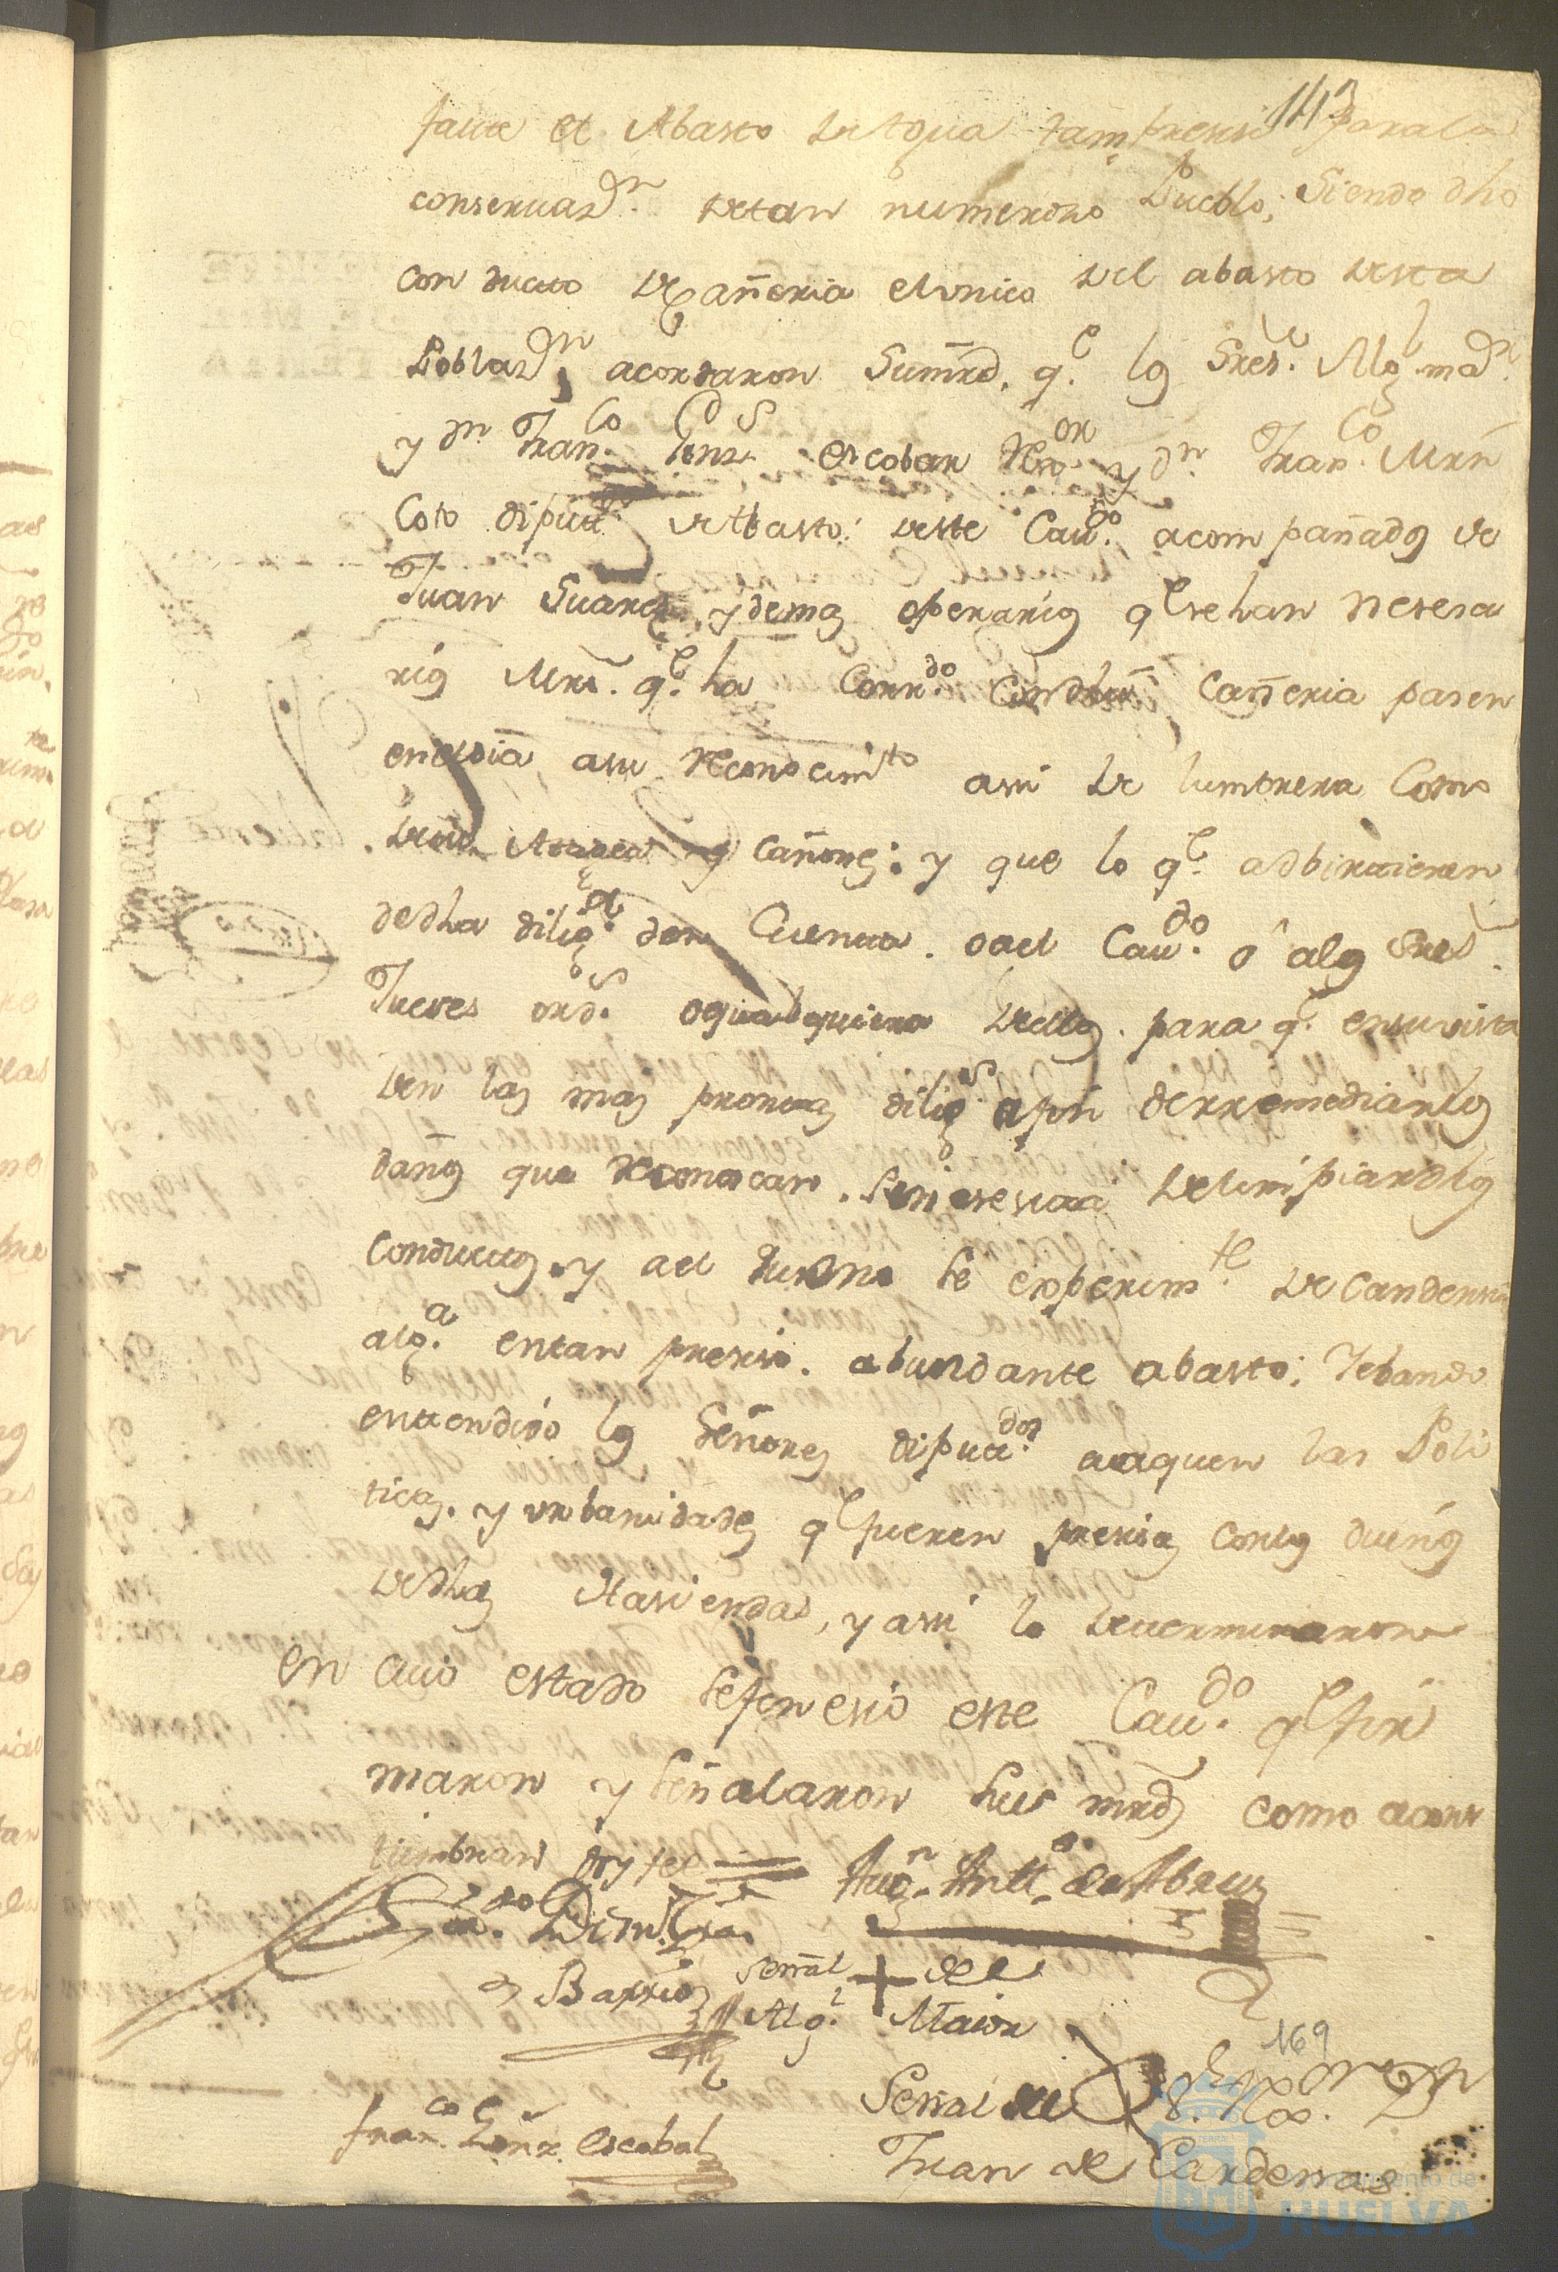 143
falte el Abasto de Agua tam presisa para la
conservaz.n de tan numeroso Pueblo; Siendo dho
conducto de Cañeria el vnico del abasto desta
Poblaz.n; acordaron Sumrd. q.e los Sres. Alg.l ma.r
y dn. Fran.co Gonz. escobar Rex.or y dn. Fran.co Mrñ
Coto diput.do de Abasto: deste Cau.do acompañados de
Juan Suarez, y demas operarios q.e sehan nesesa
rios Mrñ. q.e ha Corr.do Con dha Cañeria pasen
eneldia, asu Reconocim.to asi de lumbrera Como
y Cañones; y que lo q.e adbirtieren
dedha dilig.a den Cuenta. oael Cau.do ó alos Sres
Jueses ord.s oqualquiera dellos. para q.e ensuvista
den las mas promtas dilig.s afin derremediarlos
daños que Reconoscan. Sin esesitar delimpiar dhos
conductos. y ael Ducño Se experim.te decandensia
alg.a entan presiso. abundante abasto; Lebando
entendido los Señores diputa.dos ataquen las Poli
ticas. y vrbanidades q.e fueren presisas conlos dueños
dedhas Hasiendas, y asi lo determinaron
en cuio estado Sefenesio este Cau.do q.e fir
maron y Señalaron Sus mrds como acos
tumbran doy fee =
Aug.n Antt.o de Abreu
L.do Dn.
Barrios
Señal + del
Alg.l Maior
169
Señal de
Fran.co Gonz. Escobal
Juan de Cardenas
Ayuntamiento de
HUELVA